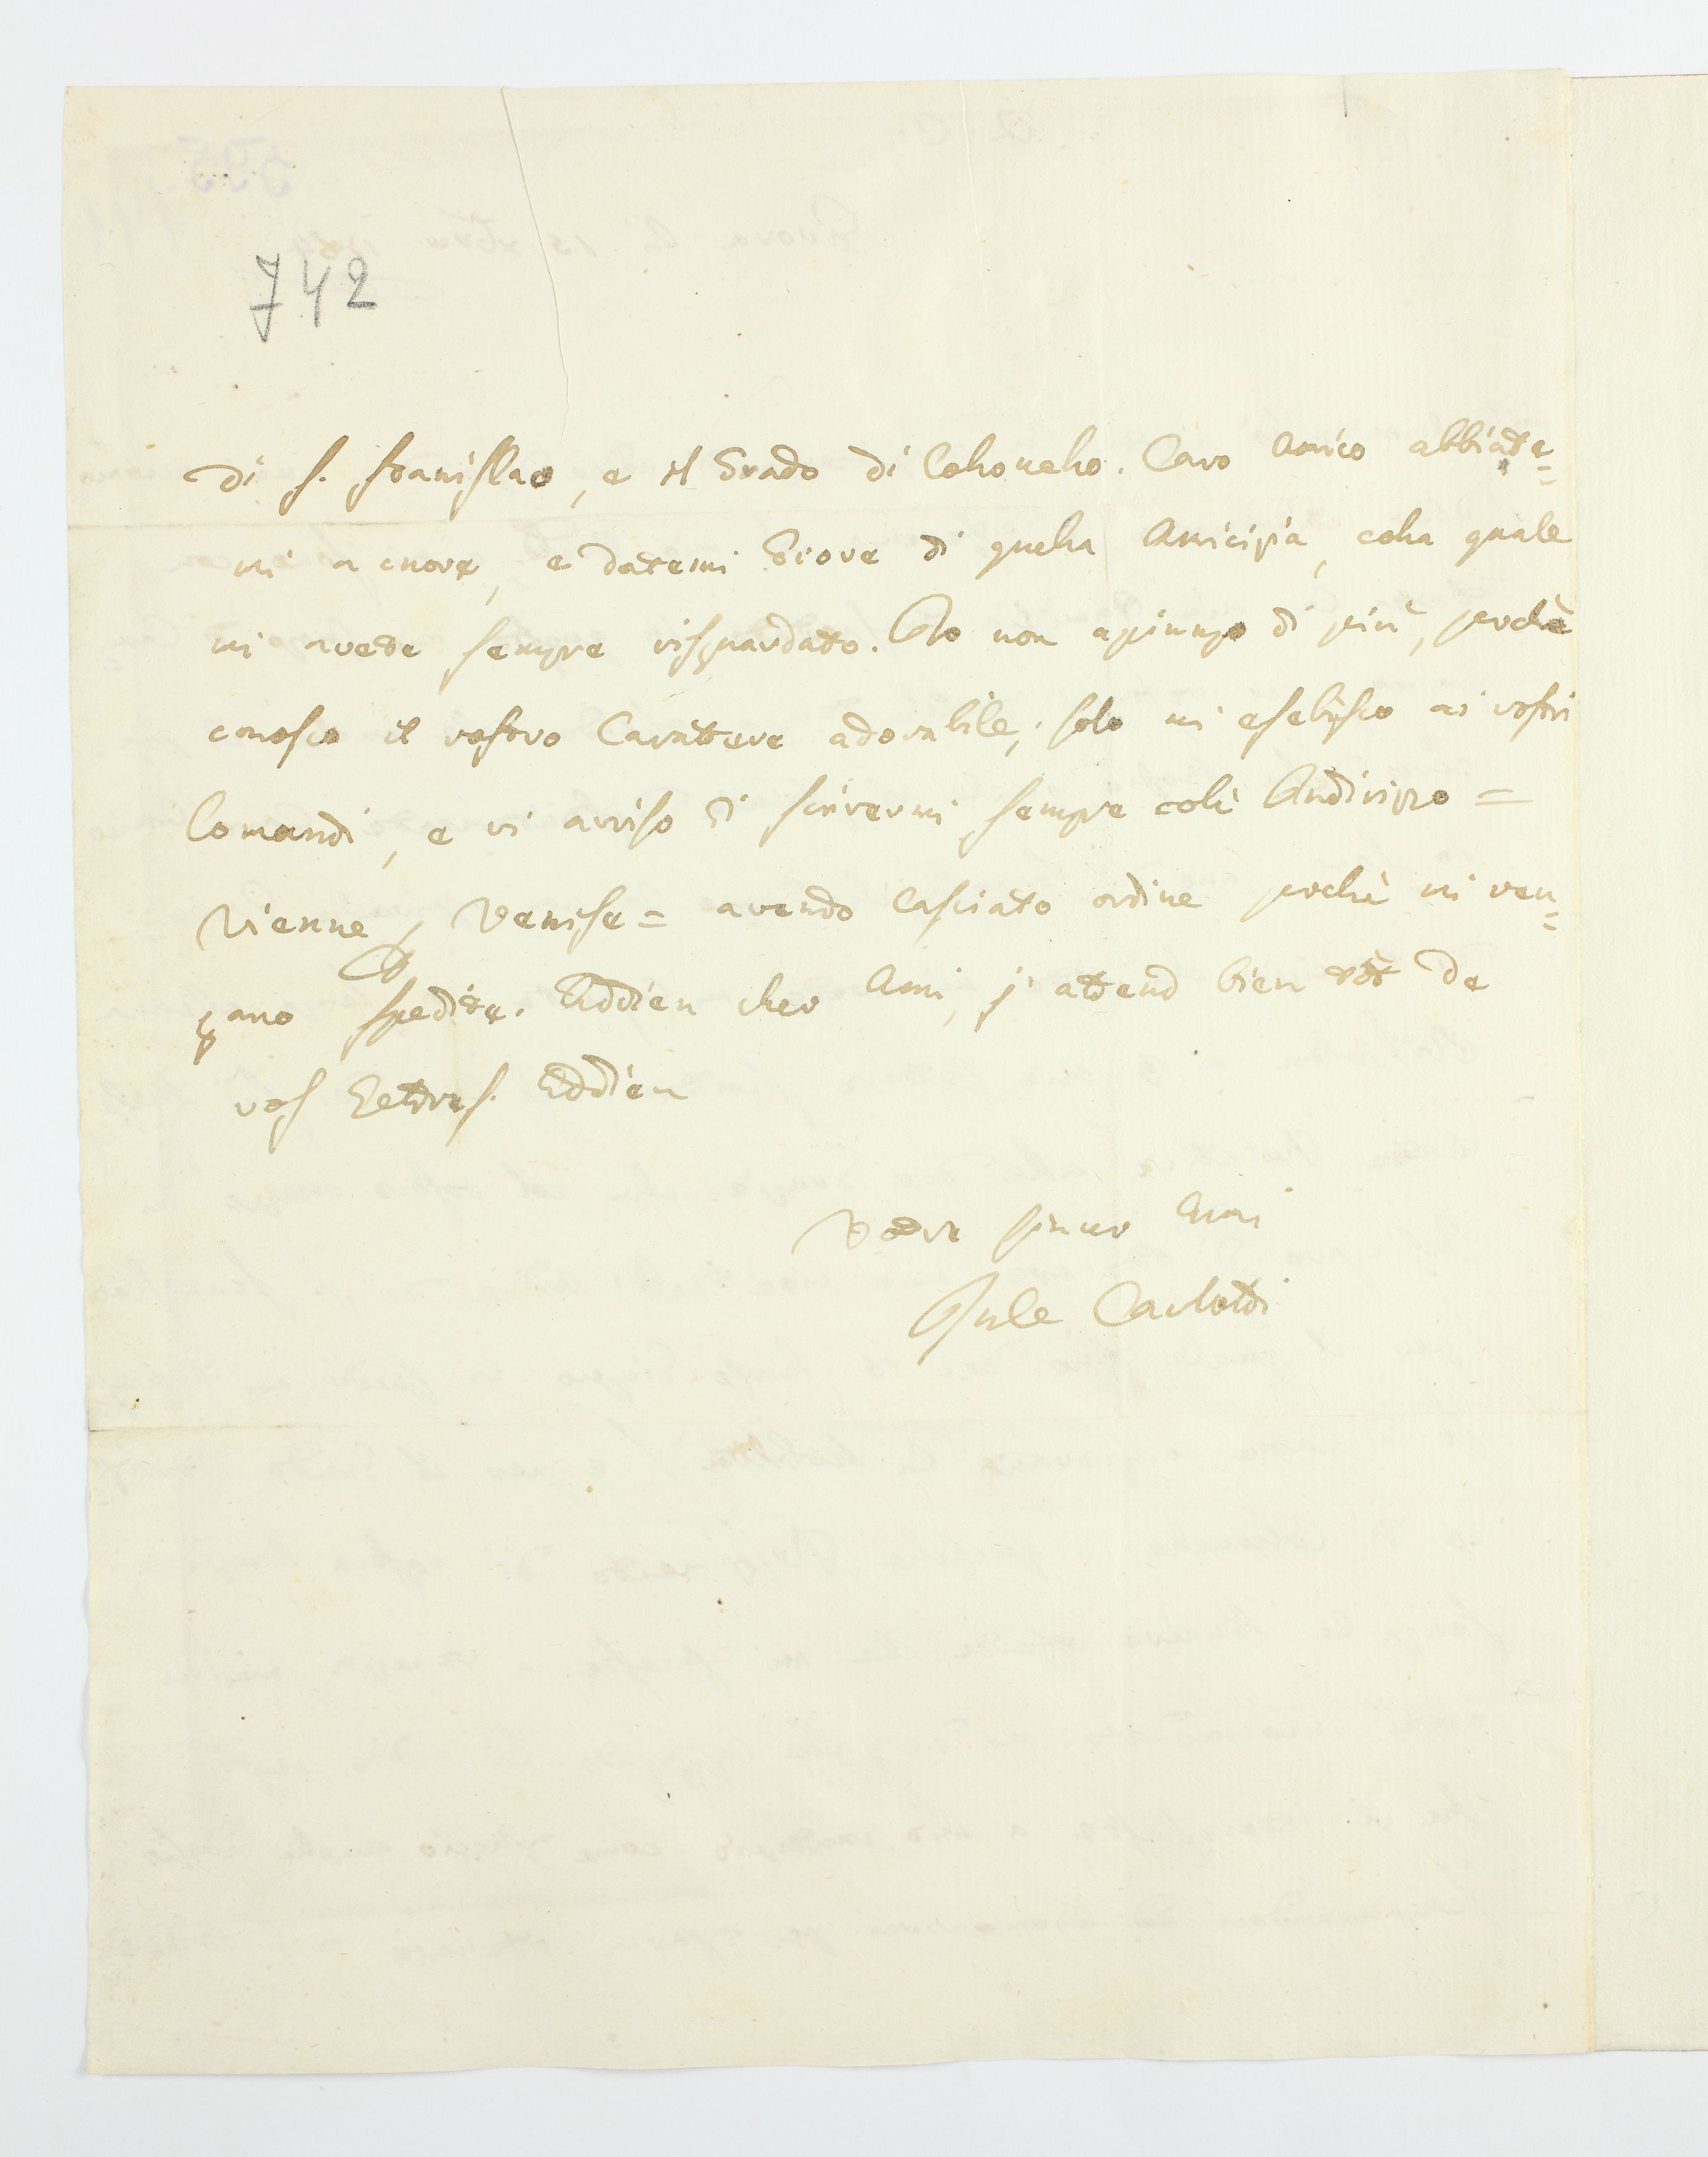 742
di S. Stanislao, e il Grado di Colonello. Caro Amico abbiate=
mi a cuore, e datemi Prove di quella Amicizia, colla quale
mi avete sempre risguardato. Io non agiungo di più, perchè
conosco il vostro Carattere adorabile, solo mi esebisco ai vostri
Comandi, e vi avviso di scrivermi sempre coll' Andirizzo =
Vienne, Venise = avendo lasciato ordine perchè mi ven=
gano spedite. Addieu cher Ami, j'attend bien tôt de
vos Lettres. Addieu
Votre sincer Ami
Jule Carlotti